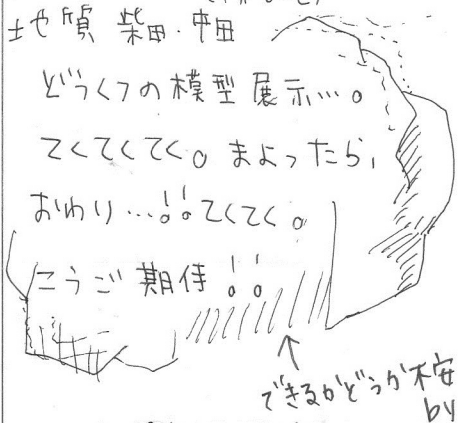 地質 柴田・中田
どうくつの模型展示…。
てくてくてく。まよったら,
おわり…!!てくてく。
こうご期待!!
できるかどうか不安
by